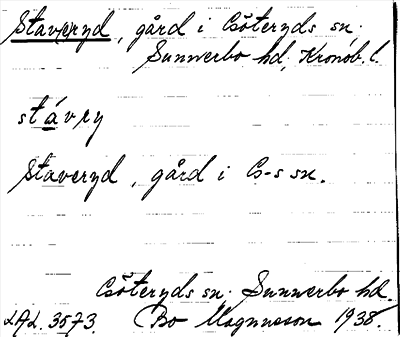 Stav(e)ryd, gård i Göteryds sn.
Sunnerbo hd, Kronob. l.
stávry
Staveryd, gård i G-s sn.
Göteryds sn. Sunnerbo hd.
LAL. 3573. Bo Magnusson 1938.